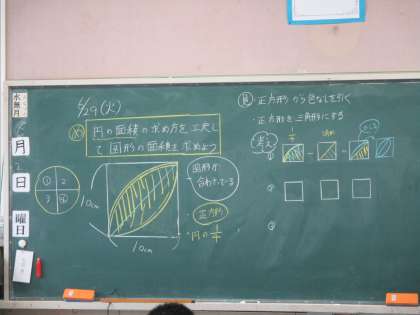 水無月
月
日
曜日
6/29(火)
め
円の面積の求め方を工夫し
て図形の面積を求めよう
① 2
3 ④
10cm
10cm
図形が
合わさっている
正方形
円の1/4
見
・正方形から色なしを引く
・正方形を三角形にする
考え
1/4
①
②
③